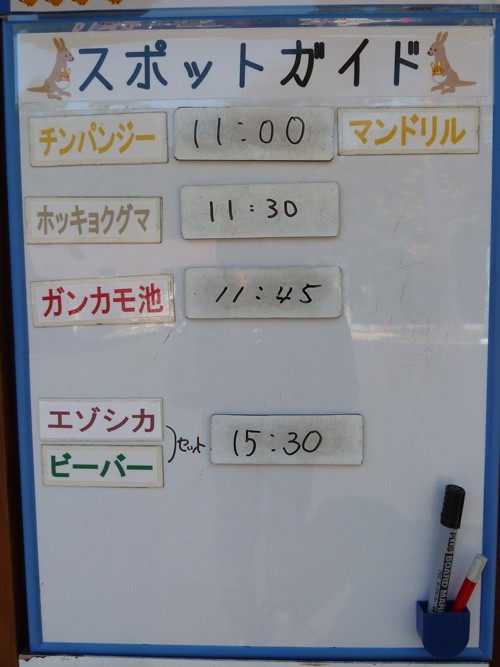 スポットガイド
チンパンジー 11:00 マンドリル
ホッキョクグマ 11:30
ガンカモ池 11:45
エゾシカ
ビーバー
セット 15:30
PLUS BOARD MARKER